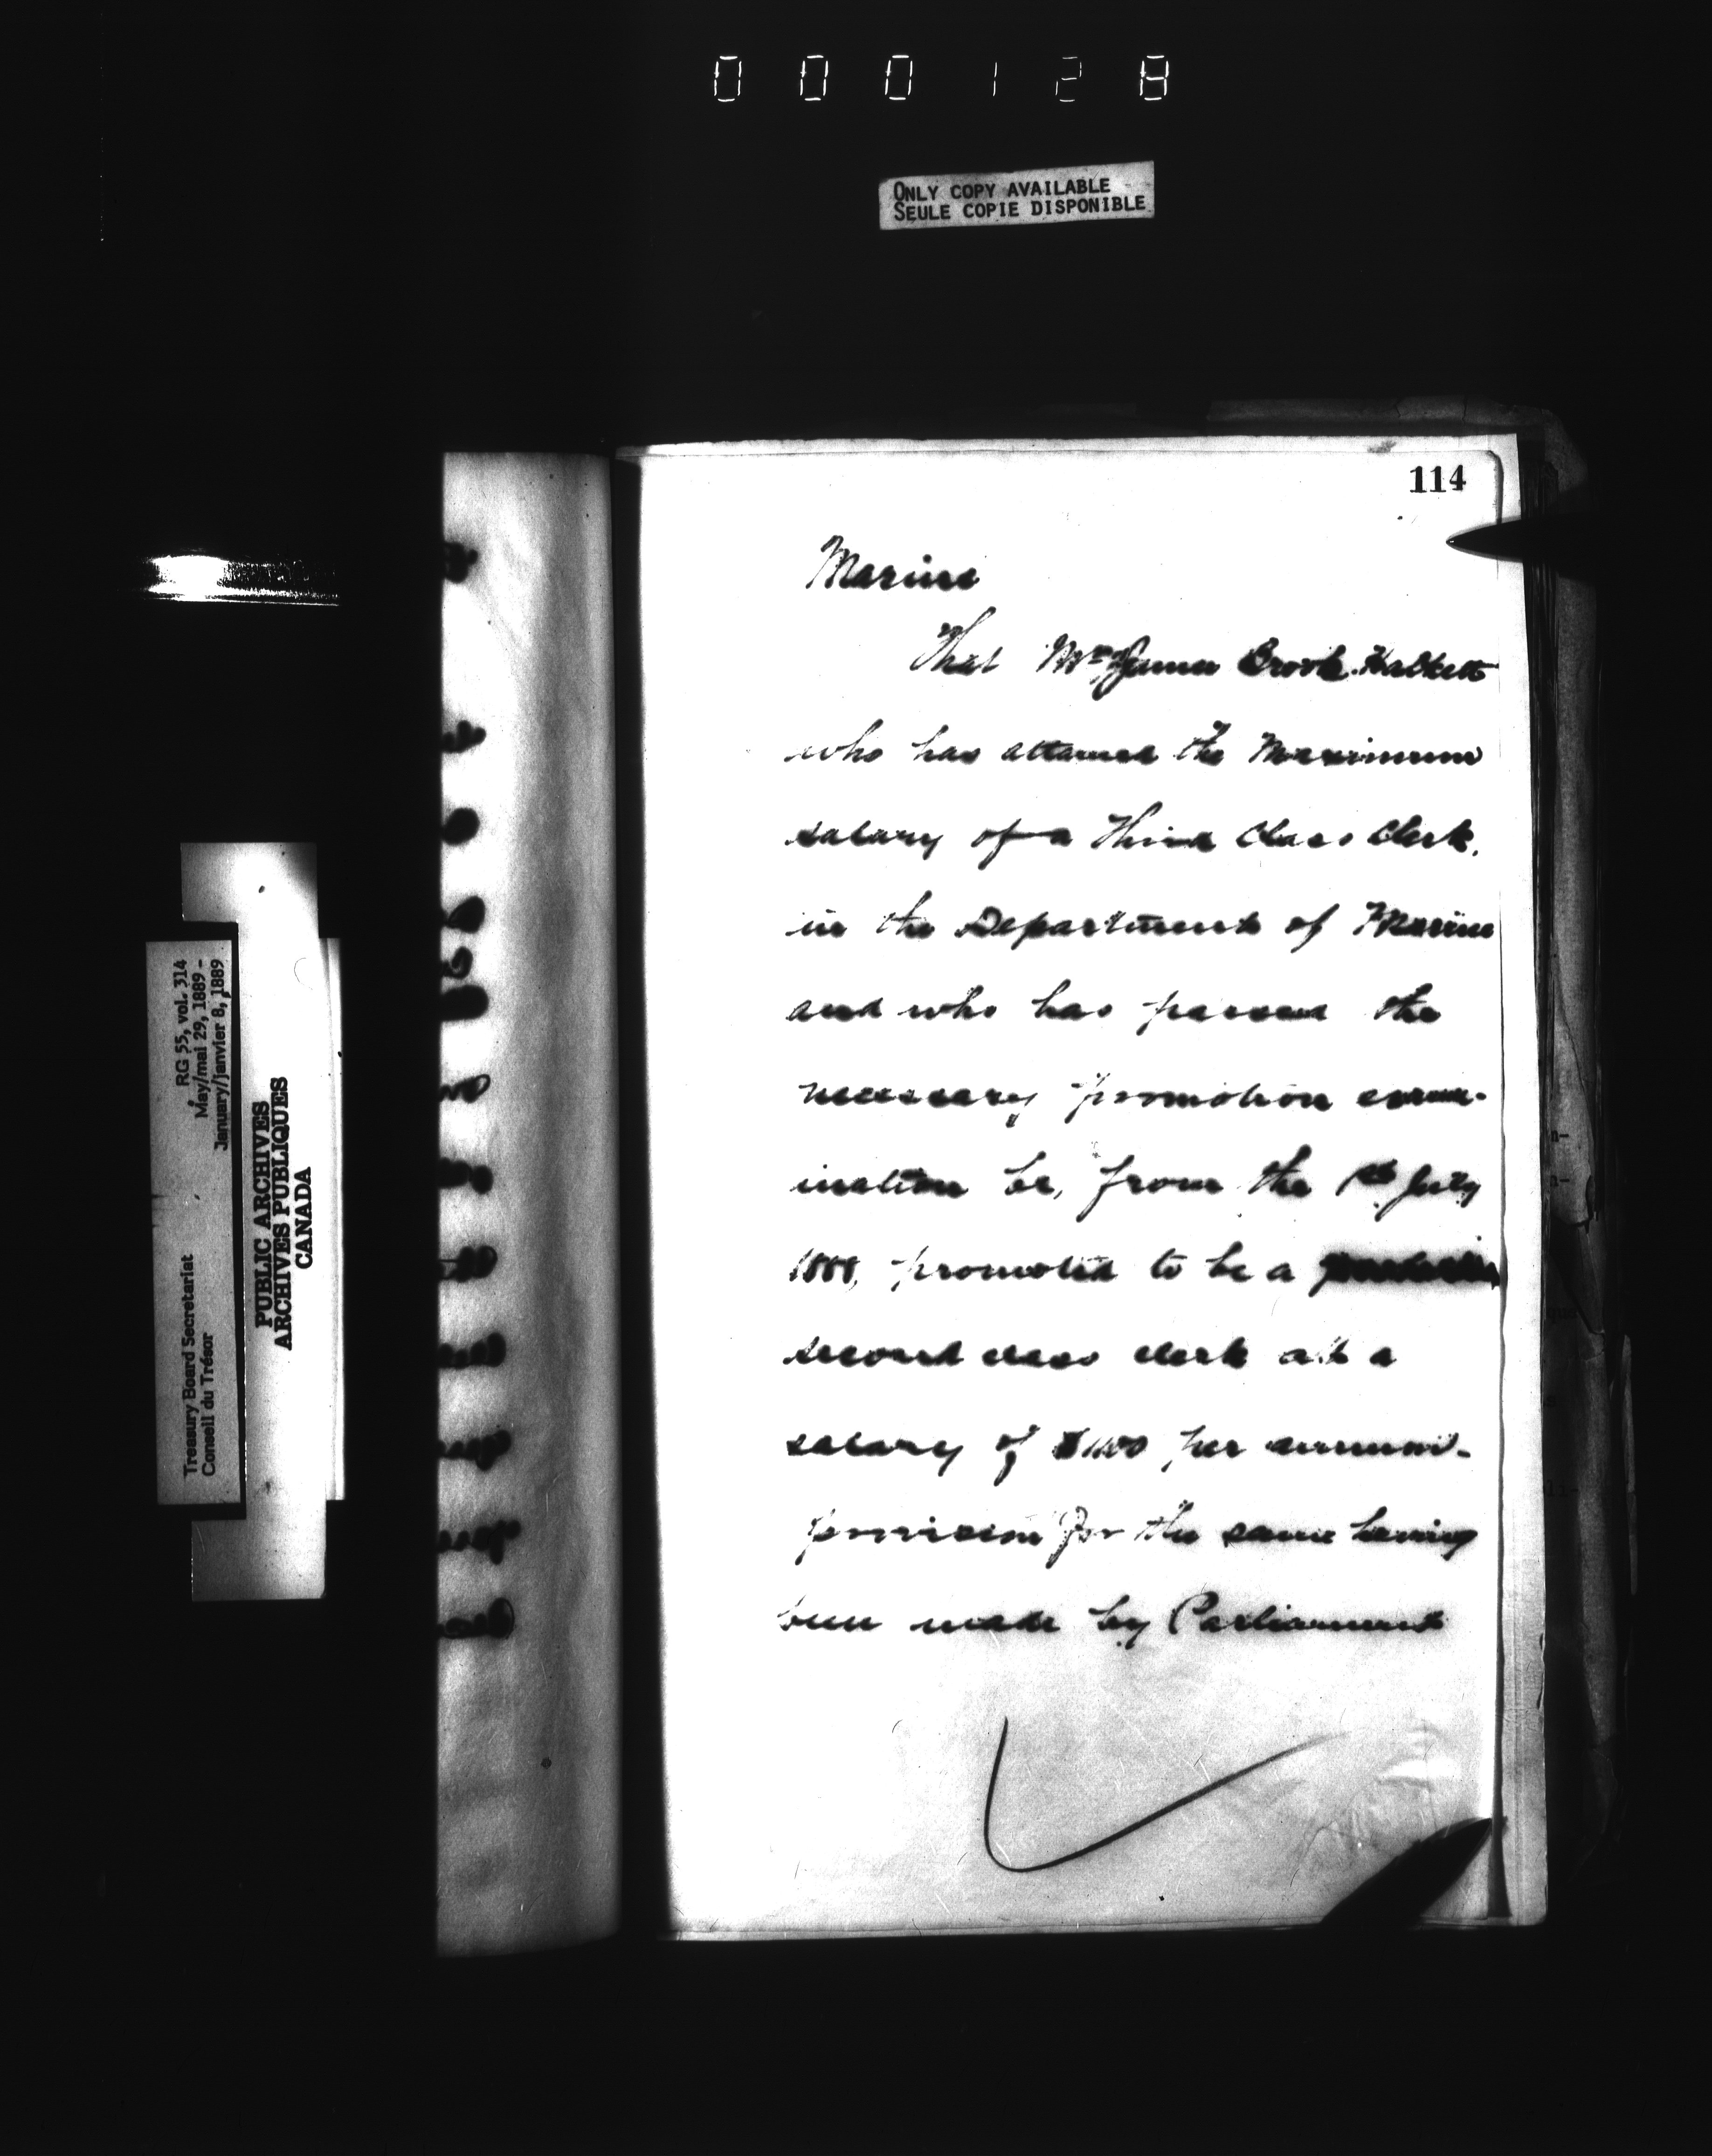 000128
ONLY COPY AVAILABLE
SEULE COPIE DISPONIBLE
114
Marine
That Mr James Brook Halkett
who has attained the Maximum
salary of a Third Class Clerk,
in the Department of Marine
and who has passed the
necessary promotion exam-
ination be, from the 1st July
1888, promoted to be a
second class clerk at a
salary of $1100 per annum -
provision for the same having
been made by Parliament
Treasury Board Secretariat
Conseil du Trésor
RG 55, vol. 314
May/mai 29, 1889 -
January/janvier 8, 1889
PUBLIC ARCHIVES
ARCHIVES PUBLIQUES
CANADA